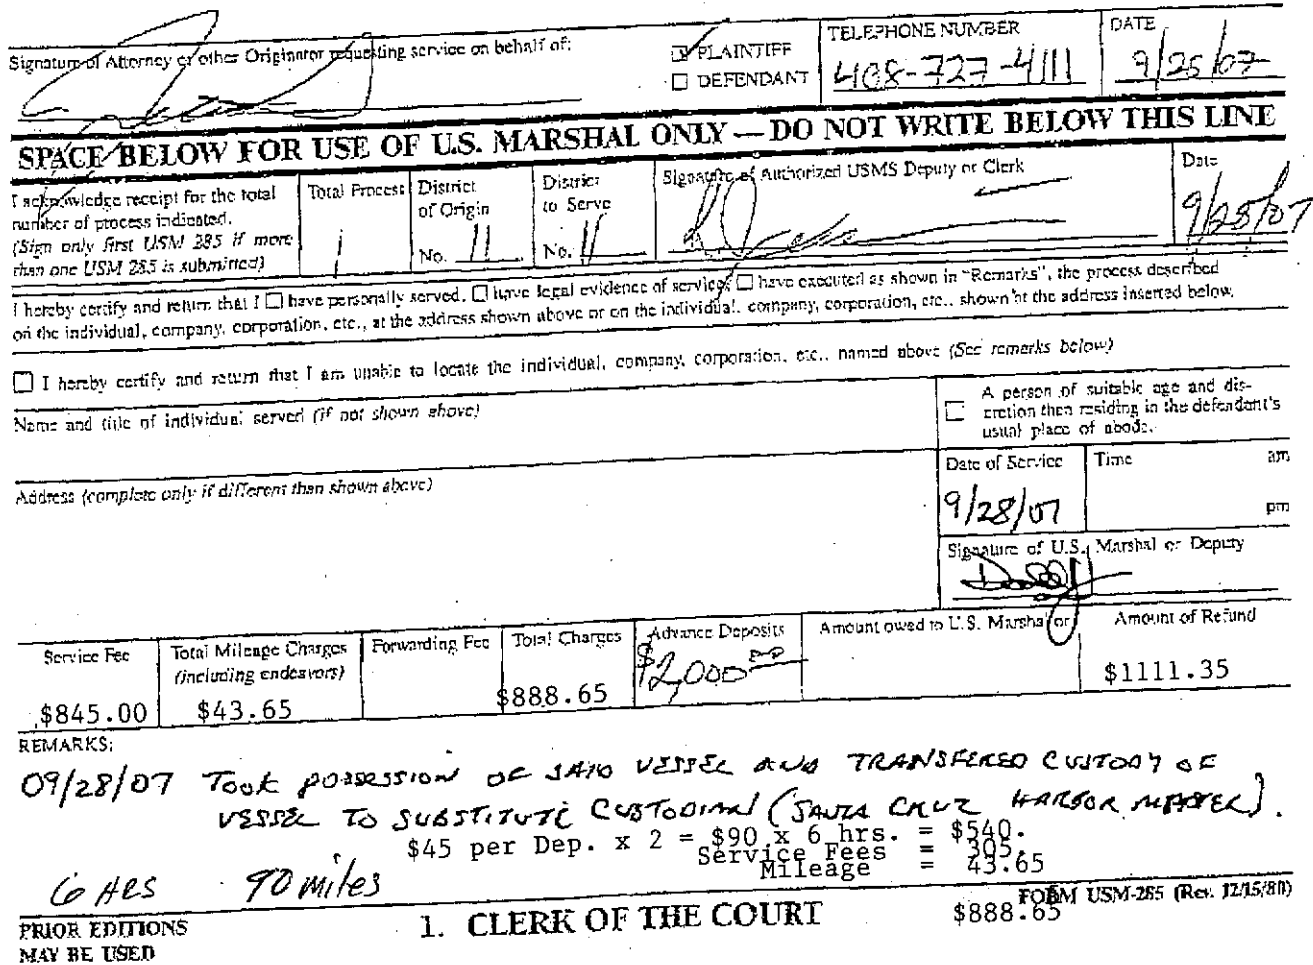 Signature of Attorney or other Originator requesting service on behalf of:
PLAINTIFF
DEFENDANT
TELEPHONE NUMBER
408-727-4111
DATE
9/25/07
SPACE BELOW FOR USE OF U.S. MARSHAL ONLY — DO NOT WRITE BELOW THIS LINE
I acknowledge receipt for the total
number of process indicated.
(Sign only first USM 285 if more
than one USM 285 is submitted)
Total Process
1
District
of Origin
No. 11
District
to Serve
No. 11
Signature of Authorized USMS Deputy or Clerk
Date
9/28/07
I hereby certify and return that I have personally served, have legal evidence of service, have executed as shown in "Remarks", the process described
on the individual, company, corporation, etc., at the address shown above or on the individual, company, corporation, etc., shown at the address inserted below.
I hereby certify and return that I am unable to locate the individual, company, corporation, etc., named above (See remarks below)
Name and title of individual served (if not shown above)
A person of suitable age and dis-
cretion then residing in the defendant's
usual place of abode.
Address (complete only if different than shown above)
Date of Service
9/28/07
Time
am
pm
Signature of U.S. Marshal or Deputy
Service Fee
$845.00
Total Mileage Charges
(including endeavors)
$43.65
Forwarding Fee
Total Charges
$888.65
Advance Deposits
$2,000.00
Amount owed to U.S. Marshal or
Amount of Refund
$1111.35
REMARKS:
09/28/07 TOOK POSSESSION OF SAID VESSEL AND TRANSFERED CUSTODY OF
VESSEL TO SUBSTITUTE CUSTODIAN (SANTA CRUZ HARBOR MASTER).
$45 per Dep. x 2 = $90 x 6 hrs. = $540.
Service Fees = 305.
Mileage = 43.65
6 HRS 90 miles
$888.65
FORM USM-285 (Rev. 12/15/80)
PRIOR EDITIONS
MAY BE USED
1. CLERK OF THE COURT